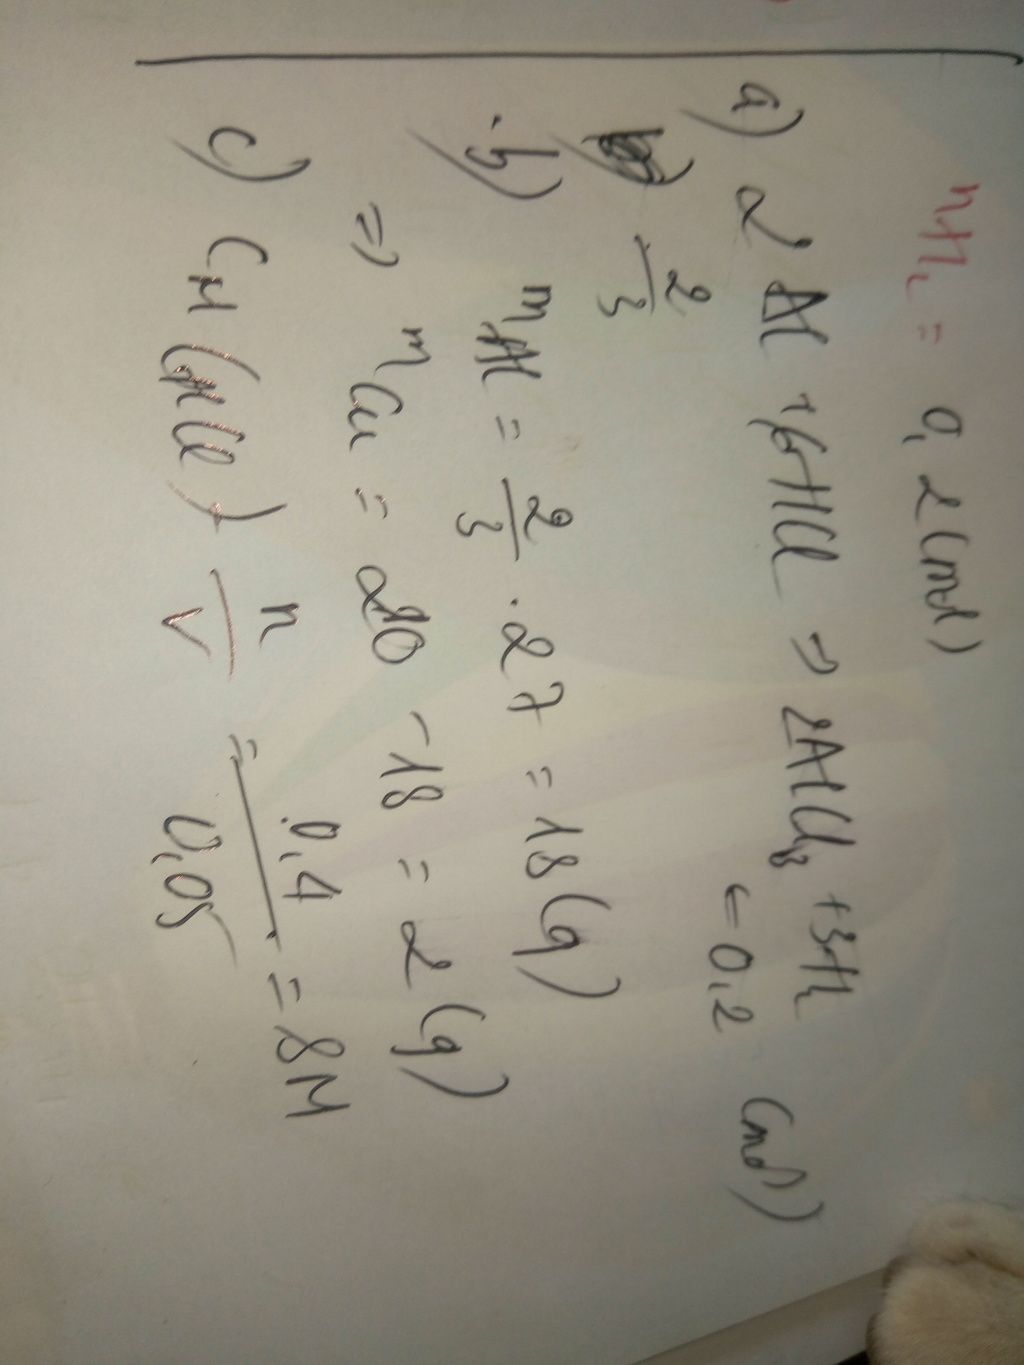 nH₂ = 0,2 (mol)
a) 2Al + 6HCl => 2AlCl₃ + 3H₂
2/3 ← 0,2 (mol)
b) mAl = 2/3 . 27 = 18 (g)
=> mCu = 20 - 18 = 2 (g)
c) CM (HCl) n/V = 0,4/0,05 = 8M